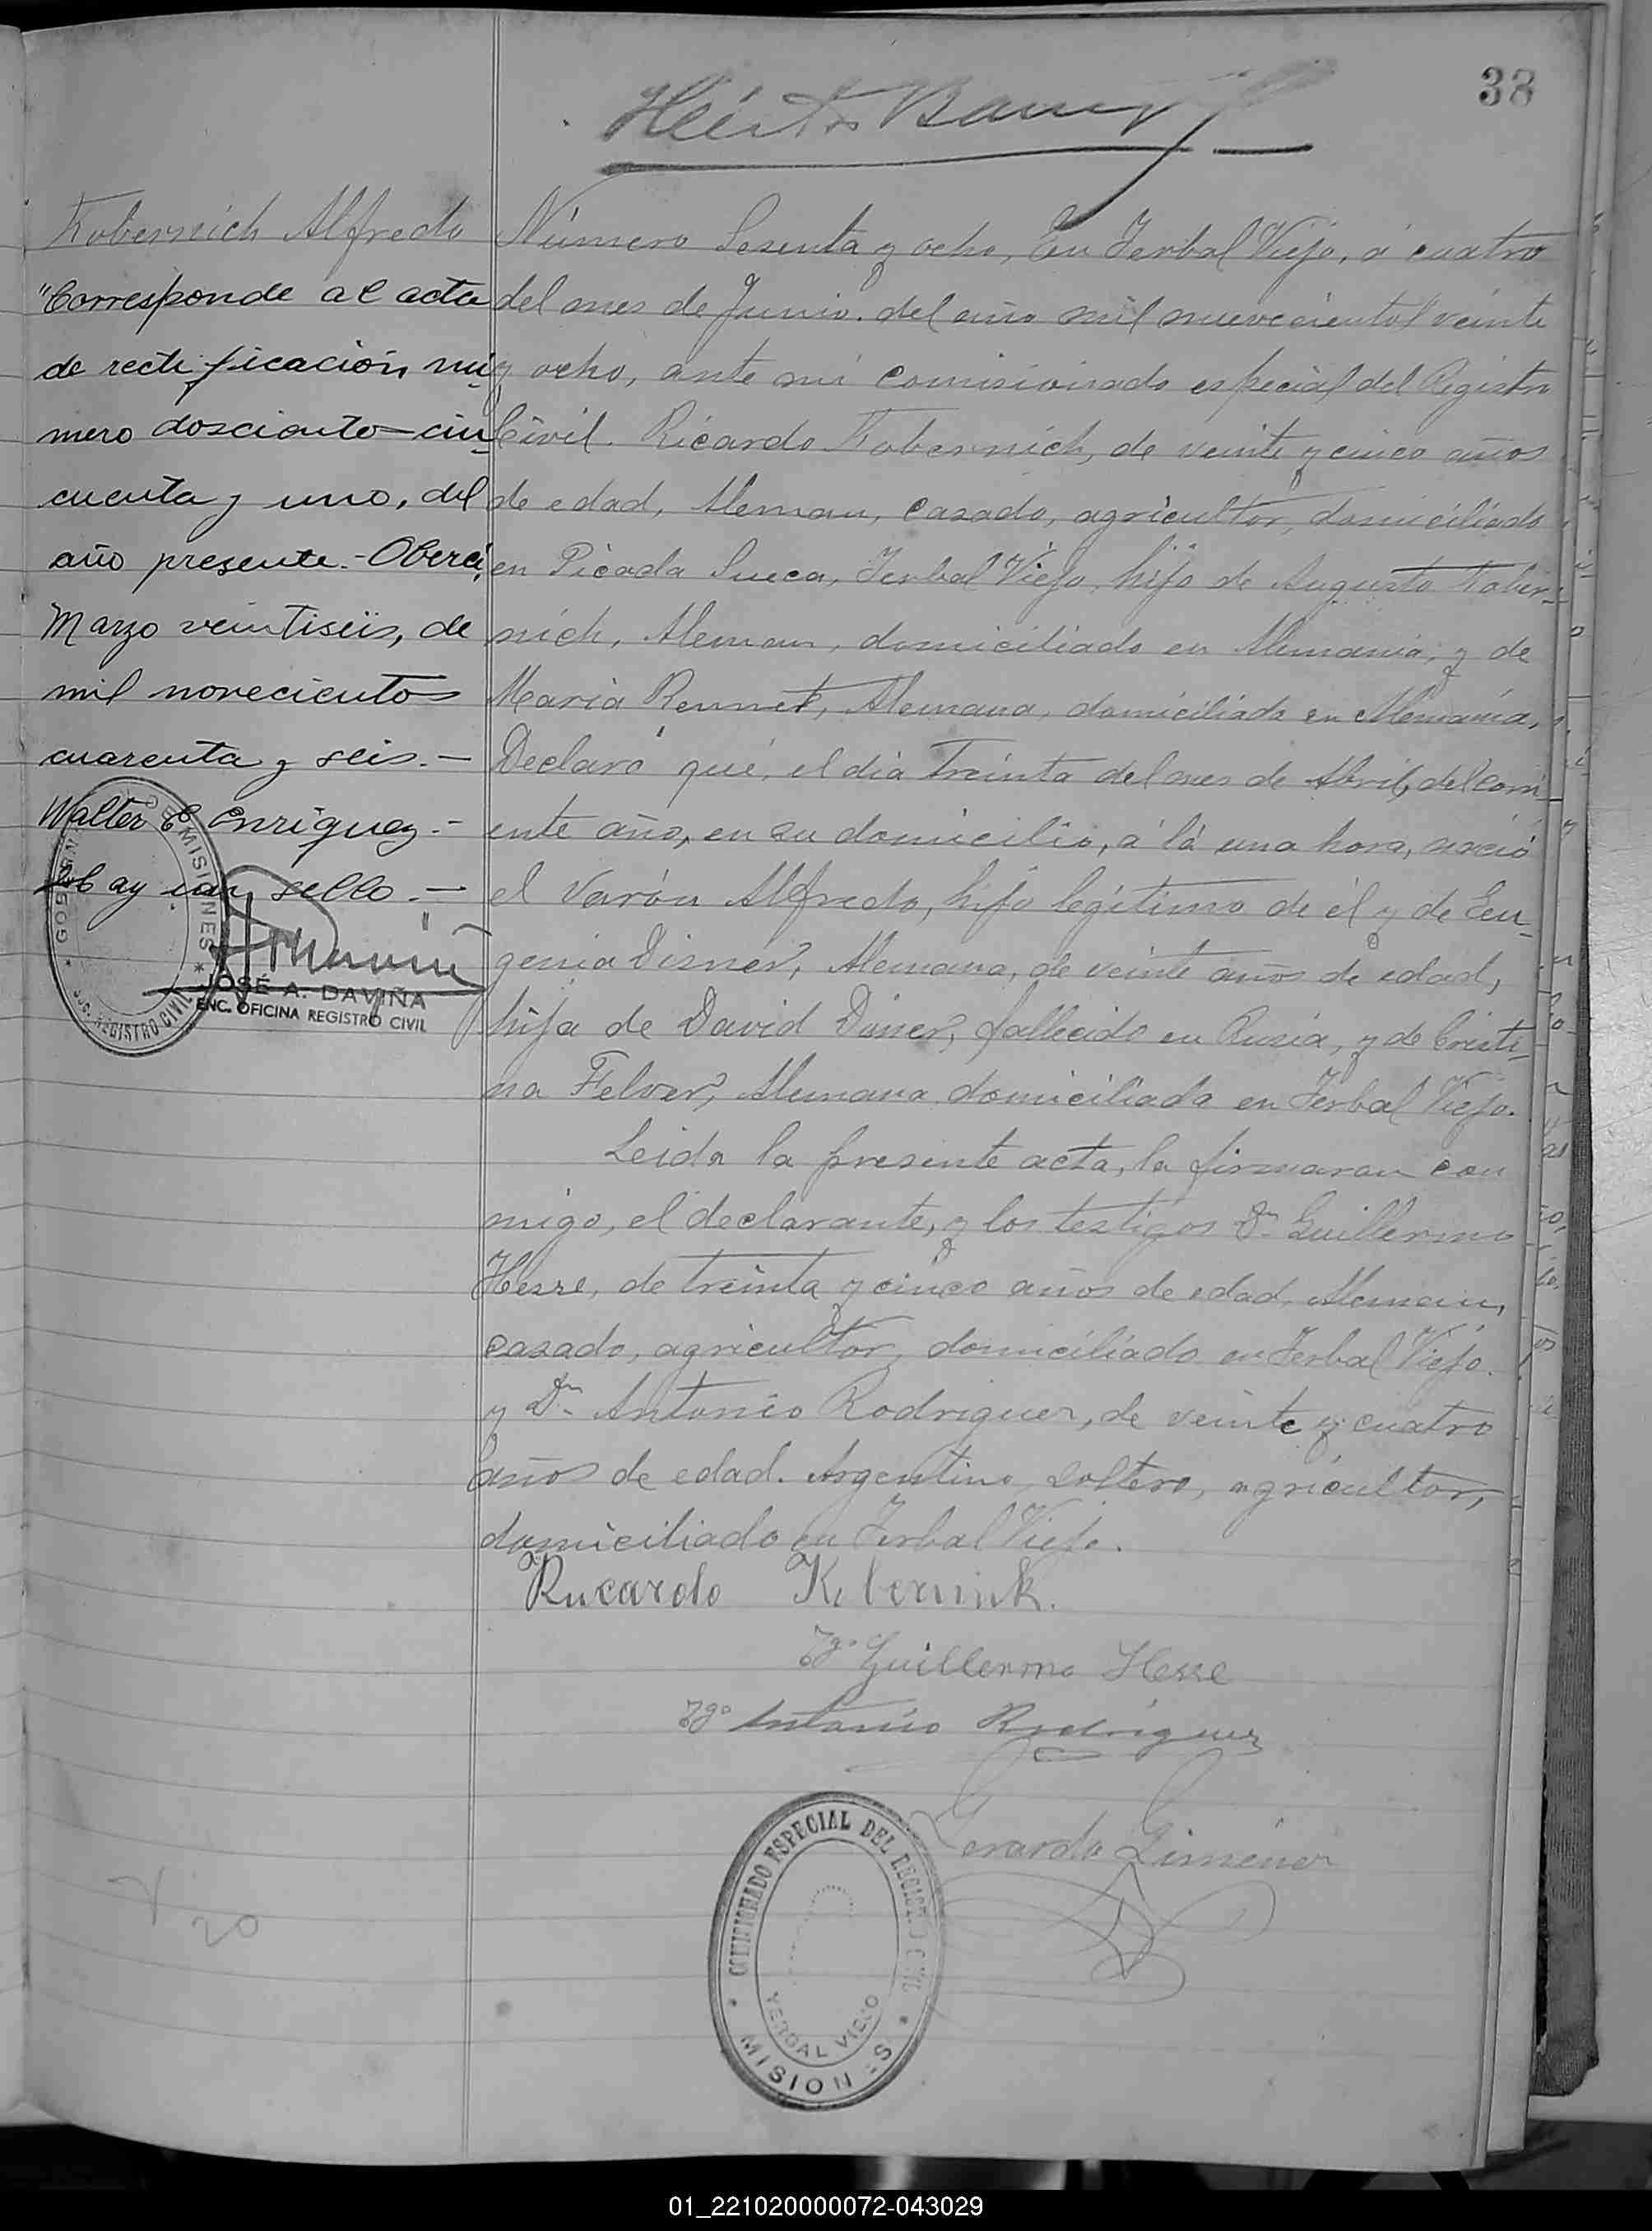 38
Kobernich Alfredo
"Corresponde al acta
de rectificación nú-
mero dosciento cin-
cuenta y uno, del
año presente.- Oberá,
Marzo veintiseis, de
mil novecientos
cuarenta y seis.-
Walter E Enriquez.-
Hay un sello.-
GOBERN DE MISIONES
REGISTRO CIVIL
JOSÉ A. DAVIÑA
ENC. OFICINA REGISTRO CIVIL
Número Sesenta y ocho, En Yerbal Viejo, á cuatro
del mes de Junio. del año mil nuevecientos veinte
y ocho, ante mi comisionado especial del Registro
Civil. Ricardo Kobernich, de veinte y cinco años
de edad, Aleman, casado, agricultor, domiciliado
en Picada Sueca, Yerbal Viejo, hijo de Augusto Kober-
nich, Aleman, domiciliado en Alemania, y de
Maria Rennet, Alemana, domiciliada en Alemania,
Declaró que, el dia Treinta del mes de Abril, del corri-
ente año, en su domicilio, á la una hora, nació
el varón Alfredo, hijo legitimo de él y de Eu-
genia Disner, Alemana, de veinte años de edad,
hija de David Disner, fallecido en Rusia, y de Cristi-
na Felser, Alemana domiciliada en Yerbal Viejo.
Leida la presente acta, la firmaran con
migo, el declarante, y los testigos Dn Guillermo
Hesse, de treinta y cinco años de edad, Aleman,
casado, agricultor, domiciliado en Yerbal Viejo.
y Dn Antonio Rodriguez, de veinte y cuatro
años de edad. Argentino, soltero, agricultor,
domiciliado en Yerbal Viejo.
Ricardo Kobernik.
Tgo Guillermo Hesse
Tgo Antonio Rodriguez
Gerardo Gimenez
COMISIONADO ESPECIAL DEL REGISTRO CIVIL
YERBAL VIEJO
* MISIONES *
20
01_221020000072-043029